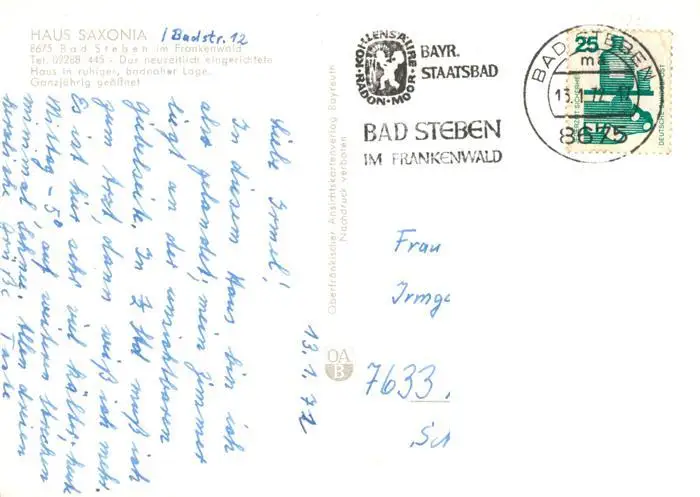 HAUS SAXONIA / Badstr. 12
8675 Bad Steben im Frankenwald
Tel. 09288 445 - Das neuzeitlich eingerichtete
Haus in ruhiger, badnaher Lage.
Ganzjährig geöffnet
13.1.72
Liebe Irmel!
In diesem Haus bin ich
also gelandet, mein Zimmer
liegt an der
Südseite. In 2 Std muß ich
zum Arzt, dann weiß ich mehr.
Es ist hier sehr viel kälter, heute
Mittag -5° auf weiten Strecken
Allen dreien
herzliche Grüße Tante
Oberfränkischer Ansichtskartenverlag Bayreuth
Nachdruck verboten
OA
B
KOHLENSÄURE
RADON-MOOR
BAYR.
STAATSBAD
BAD STEBEN
IM FRANKENWALD
BAD STEBEN
ma
13.
8675
25
DEUTSCHE BUNDESPOST
JEDERZEIT SICHERHEIT
Frau
Irmg
7633
Sch